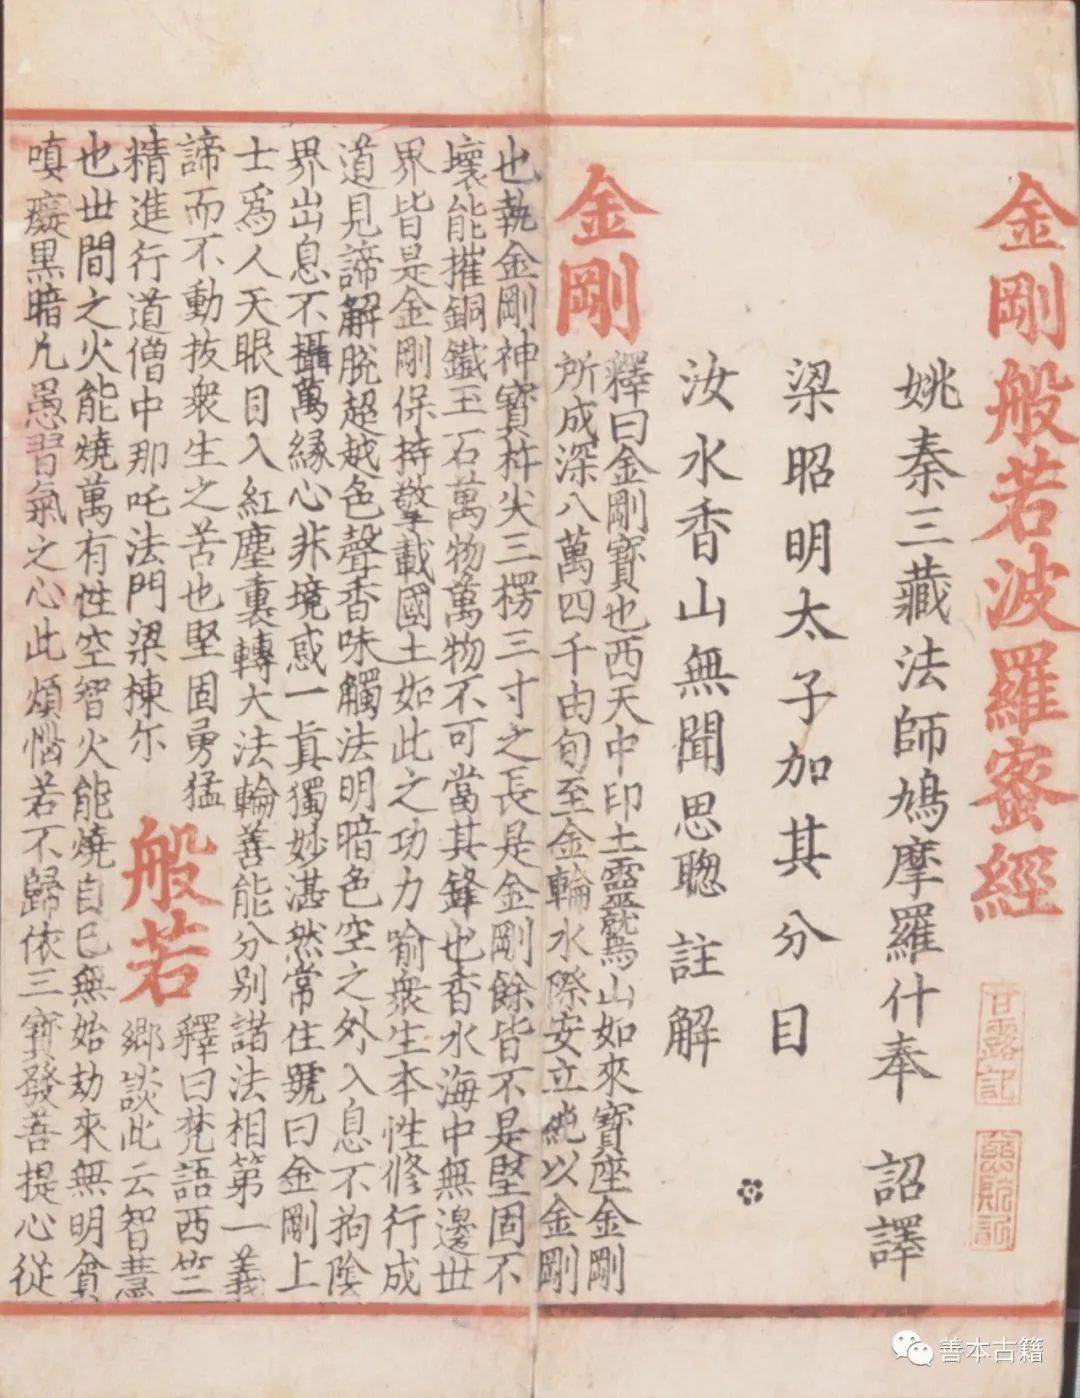 金剛般若波羅蜜經
甘露記
姚秦三藏法師鳩摩羅什奉 詔譯
梁昭明太子加其分目
汝水香山無聞思聰 註解
金剛
釋曰金剛寶也西天中印土靈鷲山如來寶座金剛
所成深八萬四千由旬至金輪水際安立純以金剛
也執金剛神寶杵尖三楞三寸之長是金剛餘皆不是堅固不
壞能摧銅鐵玉石萬物萬物不可當其鋒也香水海中無邊世
界皆是金剛保持擎載國土如此之功力喻衆生本性修行成
道見諦解脫超越色聲香味觸法明暗色空之外入息不拘陰
界出息不攝萬緣心非境惑一真獨妙湛然常住號曰金剛上
士爲人天眼目入紅塵裏轉大法輪善能分别諸法相第一義
諦而不動拔衆生之苦也堅固勇猛
精進行道僧中那吒法門梁棟尓
般若
釋曰梵語西竺
鄉談此云智慧
也世間之火能燒萬有性空智火能燒自已無始劫來無明貪
嗔癡黑暗凢愚習氣之心此煩惱若不歸依三寶發菩提心從
善本古籍